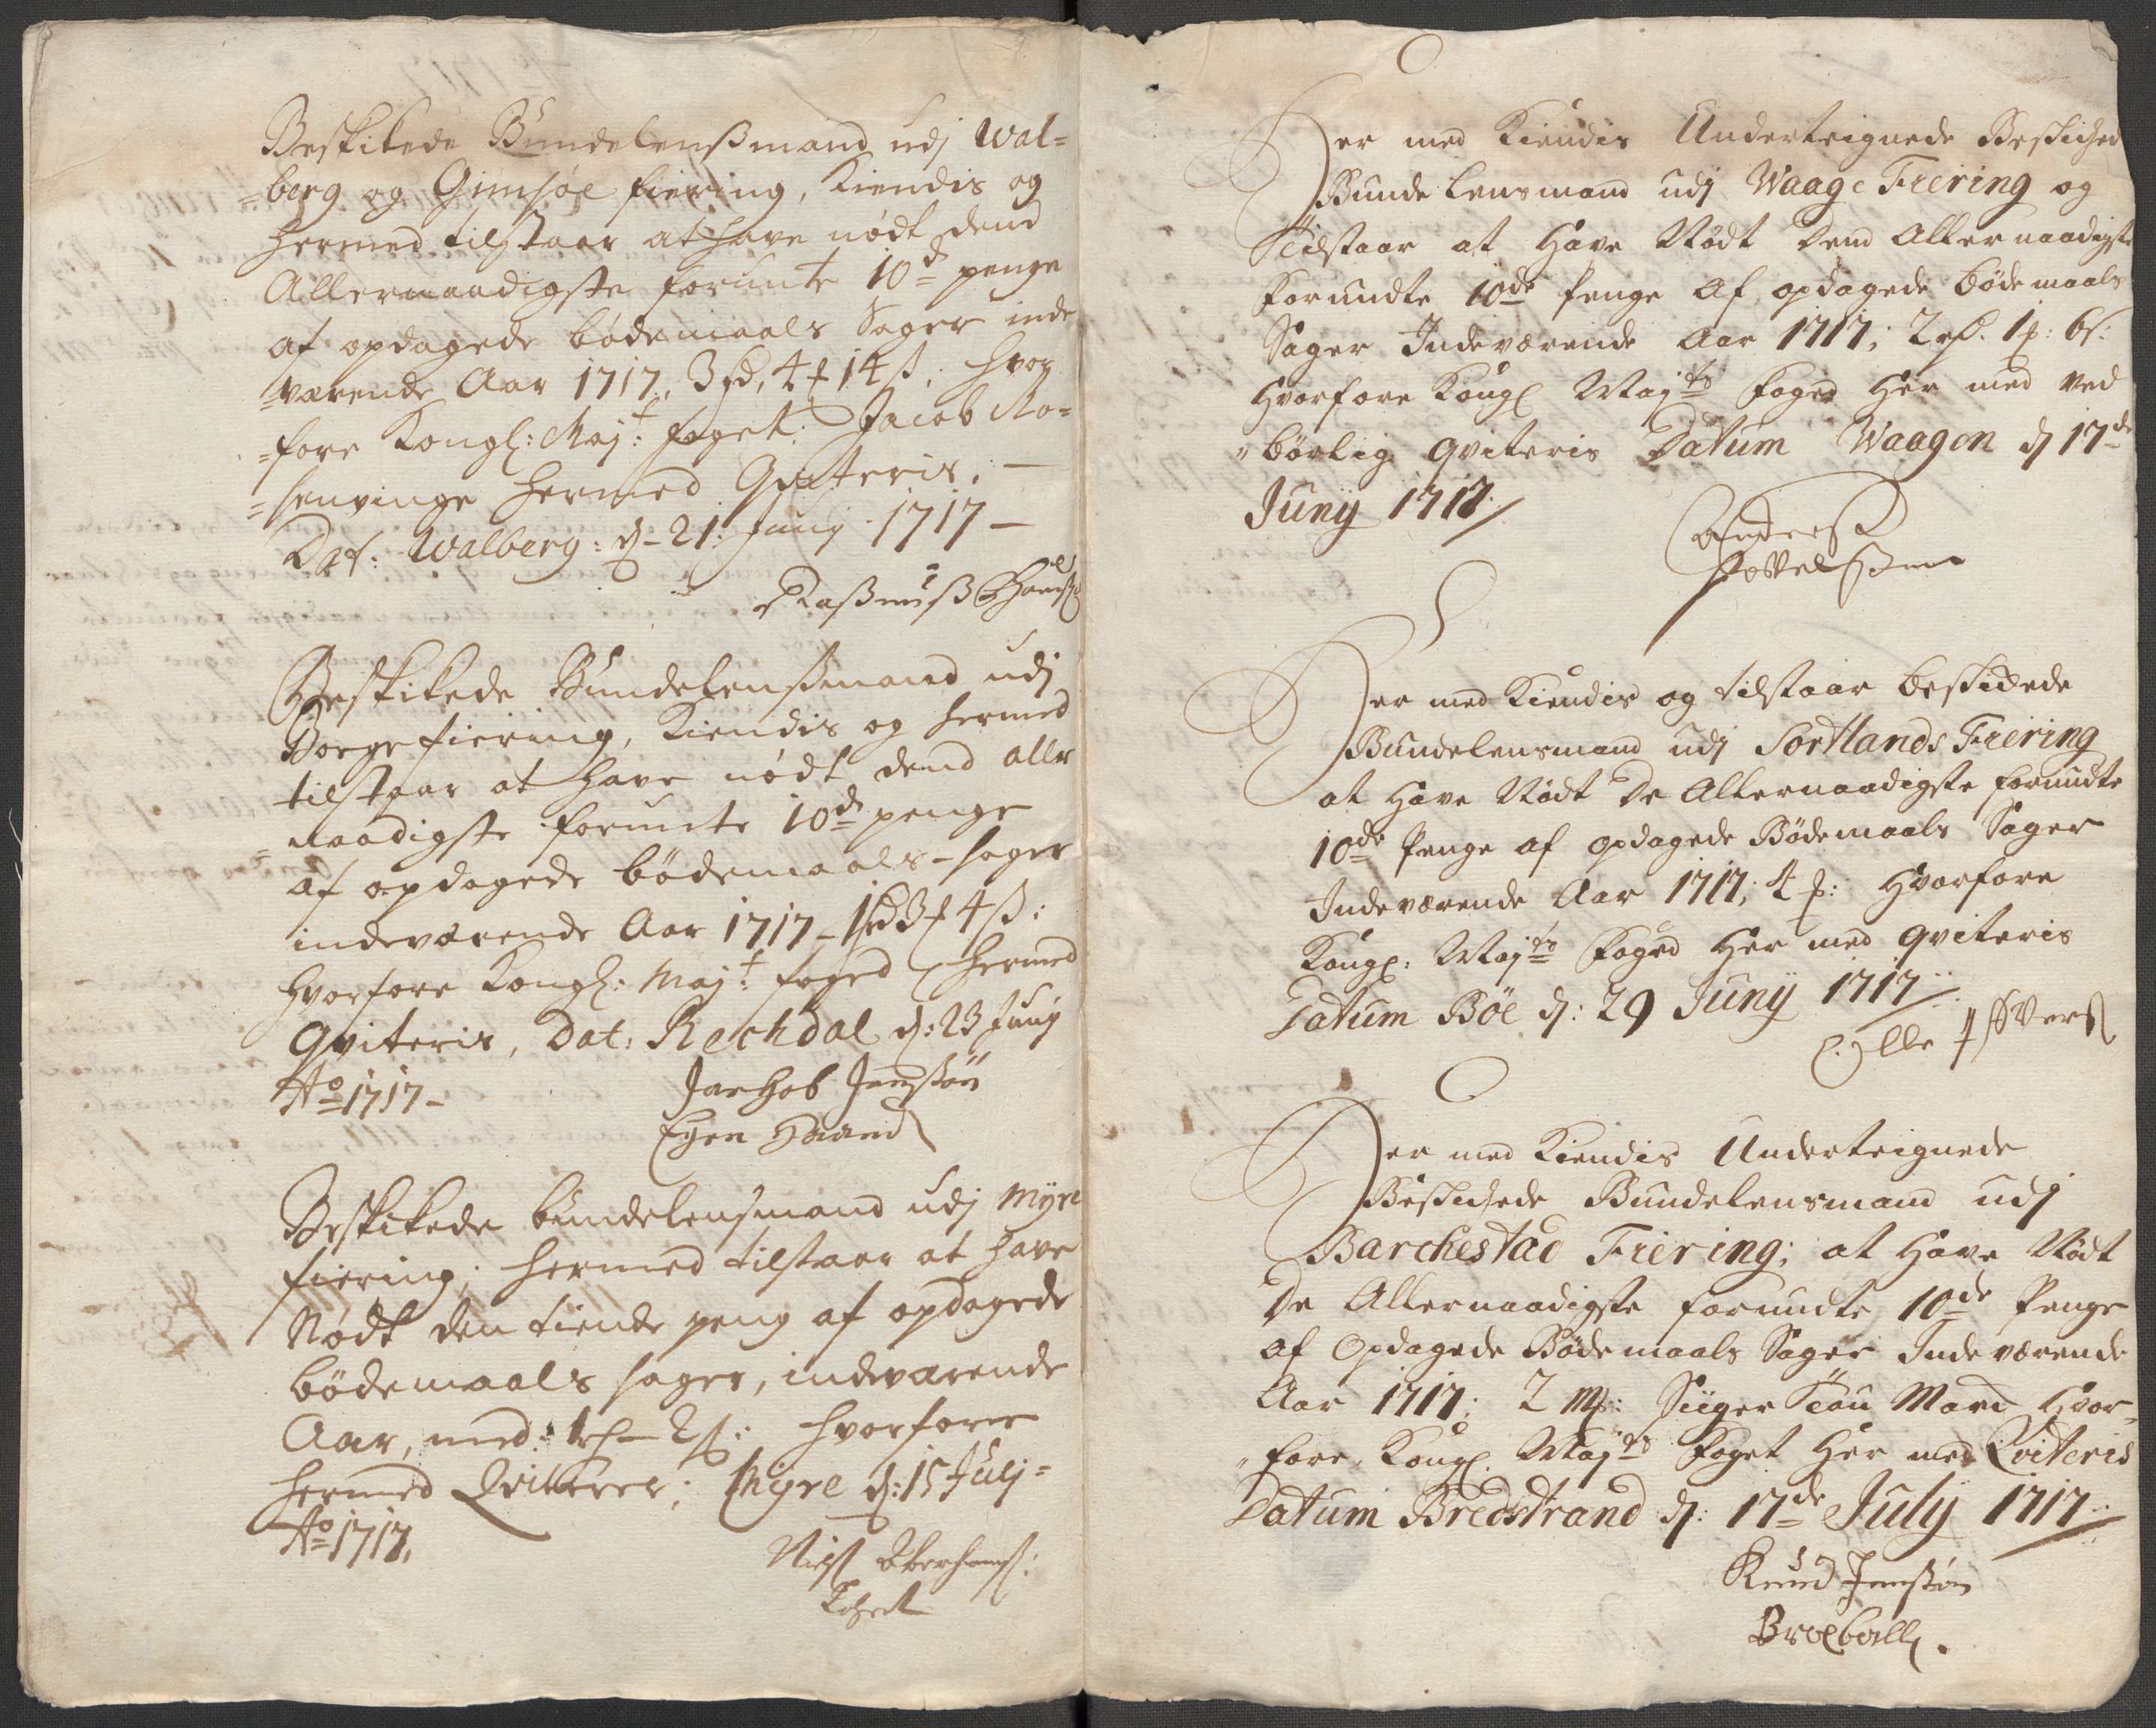 Beskikede Bundelensmand udj Wal=
=berg og Gimsøe fiering, Kiendis og
hermed tilstaar at have nødt dend
Allernaadigste forunte 10d penge
af opdagede bødemaals Sager inde
=værende Aar 1717, 3 rd, 4 # 14 ß; hvor
=fore Kongl: Majt: foget: Jacob Ro=
=senvinge hermed Qviteris; —
Dat: Walberg: d – 21: Junij 1717 —
Rasmus Hans
Beskikede Bundelensmand udj
Borge fiering, Kiendis og hermed
tilstaar at have nødt dend aller
=naadigste forunte 10d penge
af opdagede bødemaals-sager
indeværende Aar 1717 – 1 rd 3 # 4 ß:
hvorfore Kongl: Majt: foged hermed
Qviteris, Dat: Rechdal d: 23 Junij
Ao 1717 –
Jachob Jensøn
Egen Haand
Beskikede bundelensmand udj Myre
fiering; hermed tilstaar at have
Nødt den tiende peng af opdagede
bødemaals sager, indeværende
Aar, med: 1 – 2 ß: hvorfore
hermed Qvitterer; Myre d: 15 Julj =
Ao 1717,
Niels
Her med Kiendis Underteignede Beskiched
Bunde Lensmand udj Waage Fiering og
Tilstaar at Have Nødt Dend Allernaadigste
Forundte 10de Penge Af opdagede bødemaals
Sager Indeværende Aar 1717; 2 rd. 1 #: 6 ß:
Hvorfore Kongl Majts Foged Her med Ved
"børlig qviteris Datum Waagen d 17de
Junij 1717
Anders
Povelsen
Her med Kiendis og tilstaar beskickede
Bundelensmand udj Sortlands Fiering
at Have Nødt De Allernaadigste forundte
10de Penge af opdagede Bødemaals Sager
Indeværende Aar 1717; 4 #: Hvorfore
Kongl: Majts Foged Her med qviteris
Datum Böe d: 29 Junij 1717
Olle Ifvers
Her med Kiendis Underteignede
Beskichede Bundelensmand udj
Barchestad Fiering; at Have Nødt
De Allernaadigste forundte 10de Penge
af Opdagede Bødemaals Sager Indeværende
Aar 1717; 2 mk: Siiger Tou Marck Hvor=
"fore Kongl. Majts Foget Her med Qviteris
Datum Bredstrand d: 17de Julij 1717
Knud Jensøn